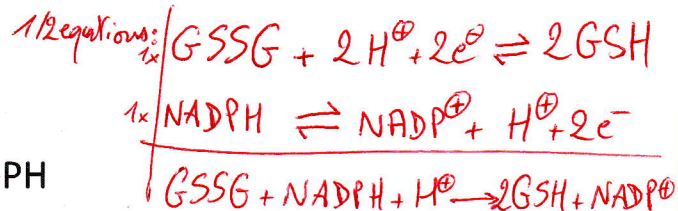 1/2 equations:
1x GSSG + 2H⊕ + 2e⊖ ⇌ 2GSH
1x NADPH ⇌ NADP⊕ + H⊕ + 2e⁻
PH
GSSG + NADPH + H⊕ → 2GSH + NADP⊕